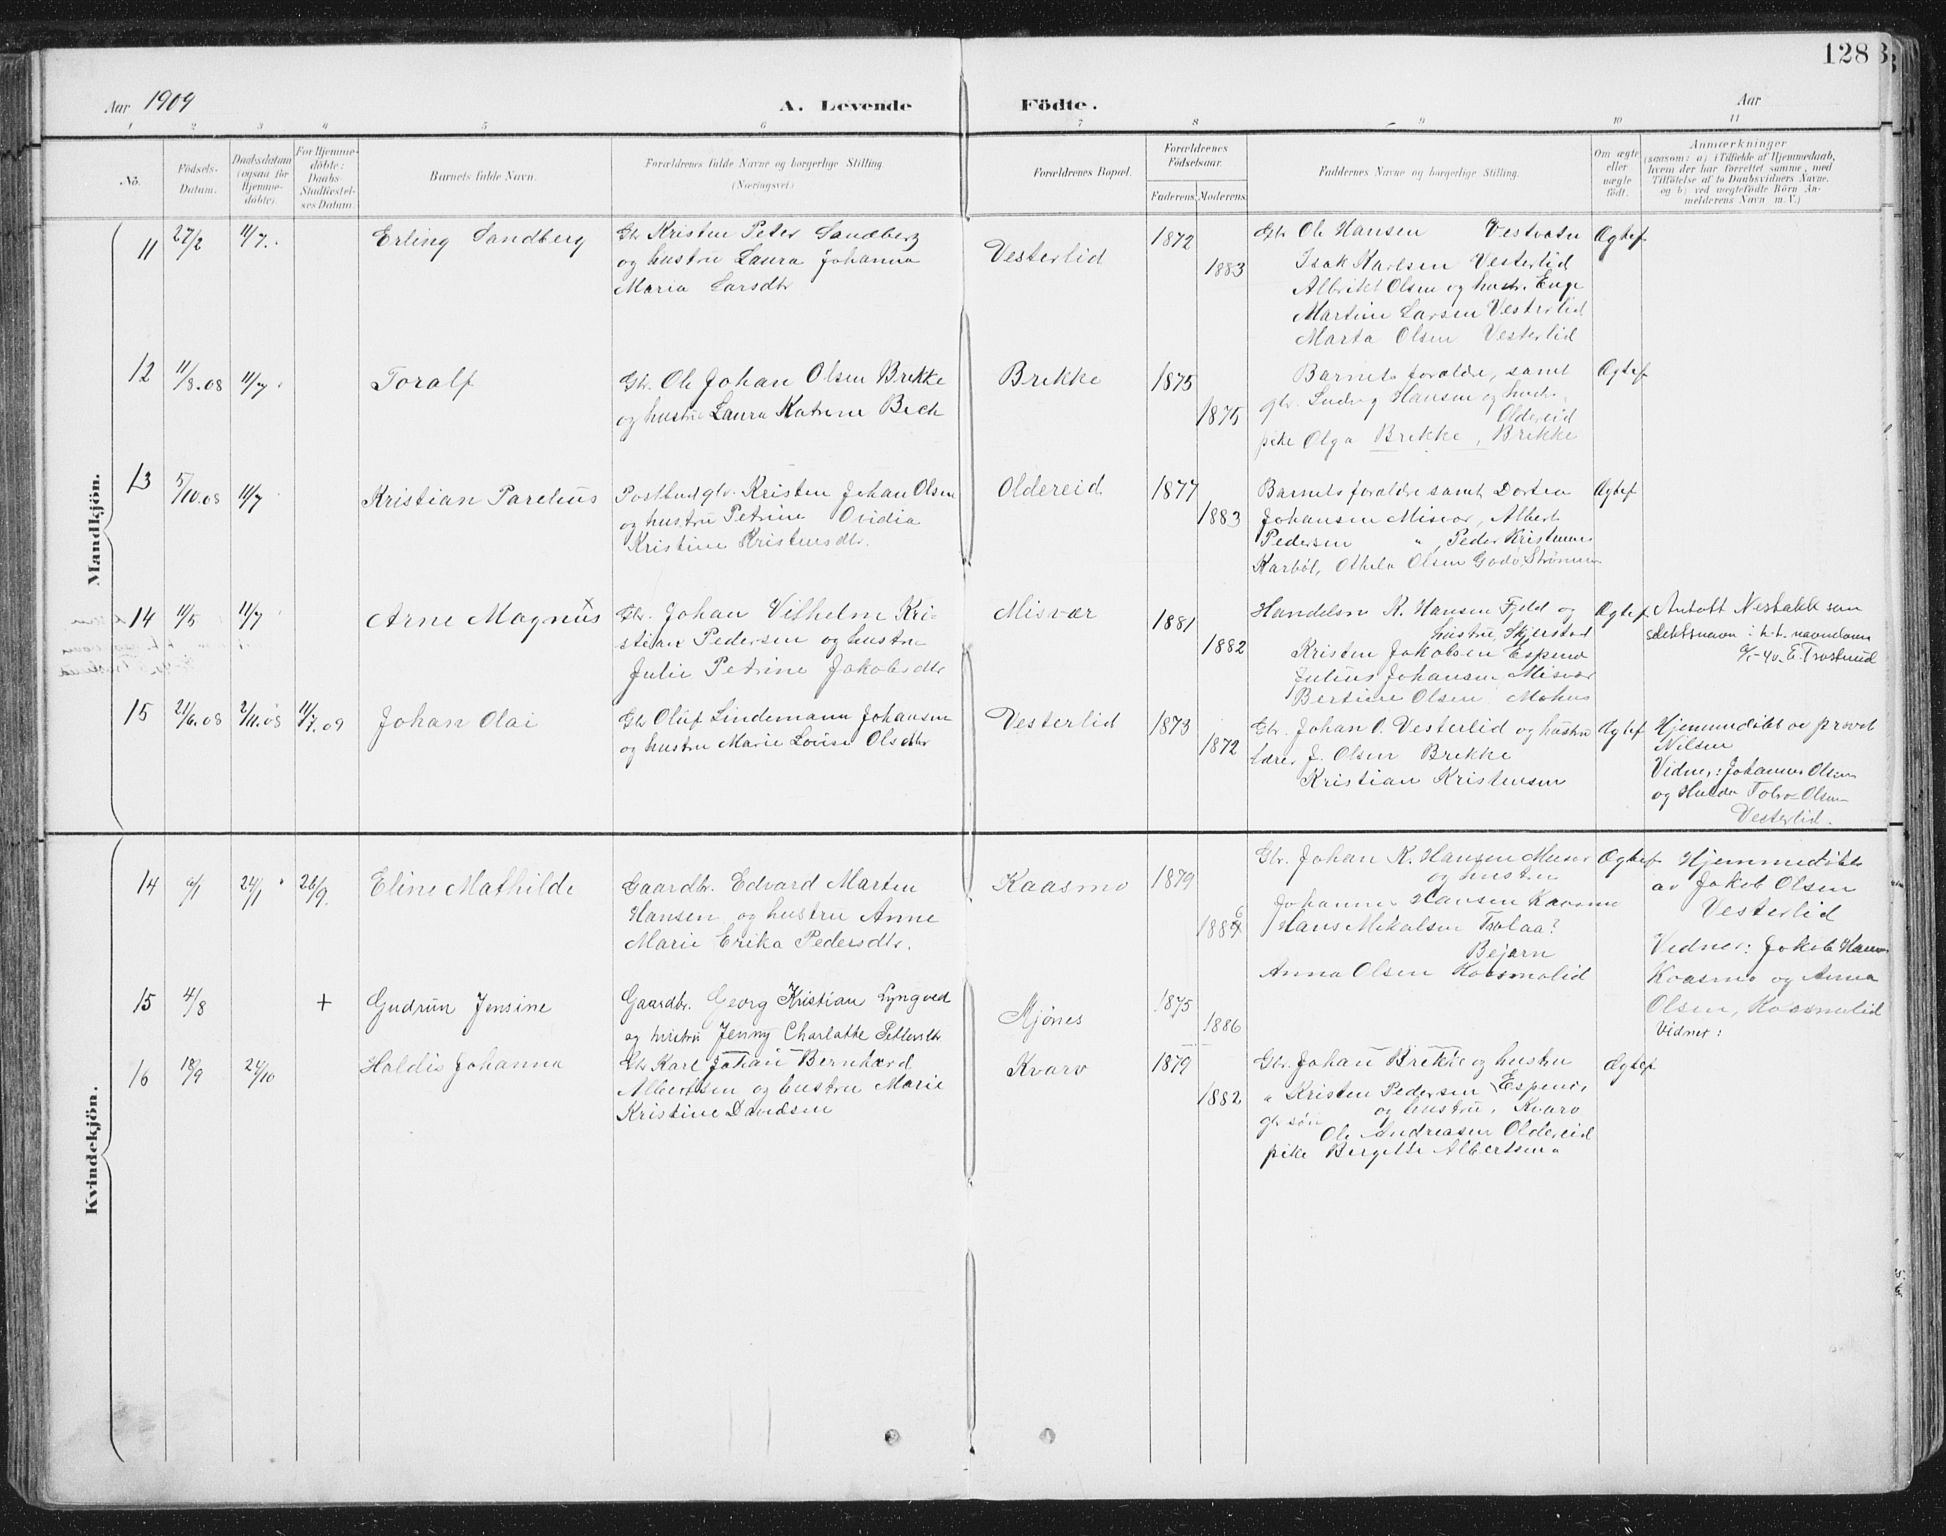 128
Aar 1909 A. Levende Födte. Aar
1 2 3 4 5 6 7 8 9 10 11
No.
Födsels-
Datum.
Daabsdatum
(ogsaa for
Hjemme-
döbte).
For Hjemme-
döbte:
Daabs-
Stadfæstel-
ses Datum.
Barnets fulde Navn.
Forældrenes fulde Navne og borgerlige Stilling.
(Næringsvei)
Forældrenes Bopæl.
Forældrenes
Födselsaar.
Faderens. Moderens.
Faddernes Navne og borgerlige Stilling.
Om ægte
eller
uægte
födt.
Anmærkninger
(saasom: a) i Tilfælde af Hjemmedaab,
hvem der har forrettet samme, med
Tilföielse af to Daabsvidners Navne.
og b) ved uægtefödte Börn An-
melderens Navn m. V.)
Mandkjön.
11 27/2 11/7. Erling Sandberg
Gbr Kristen Peter Sandberg
og hustru Laura Johanna
Maria Larsdtr
Vesterlid 1872
1883
Gbr Ole Hansen Vestvatn
Isak Karlsen Vesterlid
Albrikt Olsen og hustr. Enge
Martine Larsen Vesterlid
Marta Olsen Vesterlid
Ægtef
12 11/8.08 11/7 Toralf
Gbr. Ole Johan Olsen Brekke
og hustru Laura Katrine Bech
Brekke 1875
1875
Barnets forældre, samt
gbr. Ludvig Hansen og hustr.
Oldereid
pike Olga Brekke, Brekke
Ægtef
13 5/10.08 11/7 Kristian Parelius
Postbud gbr. Kristen Johan Olsen
og hustru Petrine Ovidia
Kristine Kristensdtr.
Oldereid 1877
1883
Barnets forældre samt Dortea
Johansen Misvær, Albert
Pedersen " , Peder Kristensen
Karbøl, Othela Olsen Godø, Strømnes
Ægtef
14 11/5 11/7 Arne Magnus x
Gbr. Johan Vilhelm Kri-
stian Pedersen og hustru
Julie Petrine Jakobsdtr
Misvær 1881
1882
Handelsm K. Hansen Fjeld og
hustru, Skjerstad
Kristen Jakobsen Espenes
Julius Johansen Misvær
Bertine Olsen Mohus
Ægtef
Antatt Nestakk som
slektsnavn i h.t. navneloven
E. Trostrud
15 21/6.08 2/11.08 11/7.09 Johan Olai
Gbr Oluf Lindemann Johansen
og hustru Marie Louise Olsdtr
Vesterlid 1873
1872
Gbr. Johan O. Vesterlid og hustru
Lærer J. Olsen Brekke
Kristian Kristensen
Ægtef
Hjemmedøbt av provst
Nilsen
Vidner: Johannes Olsen
og Hulda Olsen
Vesterlid.
Kvindekjön.
14 6/1 24/1 26/9. Eline Mathilde
Gaardbr. Edvard Marten
Hansen og hustru Anne
Marie Erika Pedersdtr.
Kaasmo 1879
1886
Gbr. Johan K. Hansen Misvær
og hustru
Johannes Hansen Kaasmo
Hans Mikalsen Tolaa?
Bejarn
Anna Olsen Kaasmolid
Ægtef
Hjemmedøbt
av Jakob Olsen
Vesterlid
Vidner: Jakob Hansen
Kaasmo og Anna
Olsen, Kaasmolid
Vidner:
15 4/8 + Gudrun Jensine
Gaardbr. Georg Kristian Lyngved
og hustru Jenny Charlotte Pettersdtr
Mjønes 1875
1886
16 18/9 24/10 Haldis Johanna
Gbr Karl Johan Bernhard
Albertsen og hustru Marie
Kristine Davidsen
Kvarv 1879
1882
Gbr. Johan Brekke og hustru
" Kristen Pedersen Espenes
og hustru, Kvarv
gbr søn Ole Andreasen Oldereid
pike Birgitte Albertsen
Ægtef